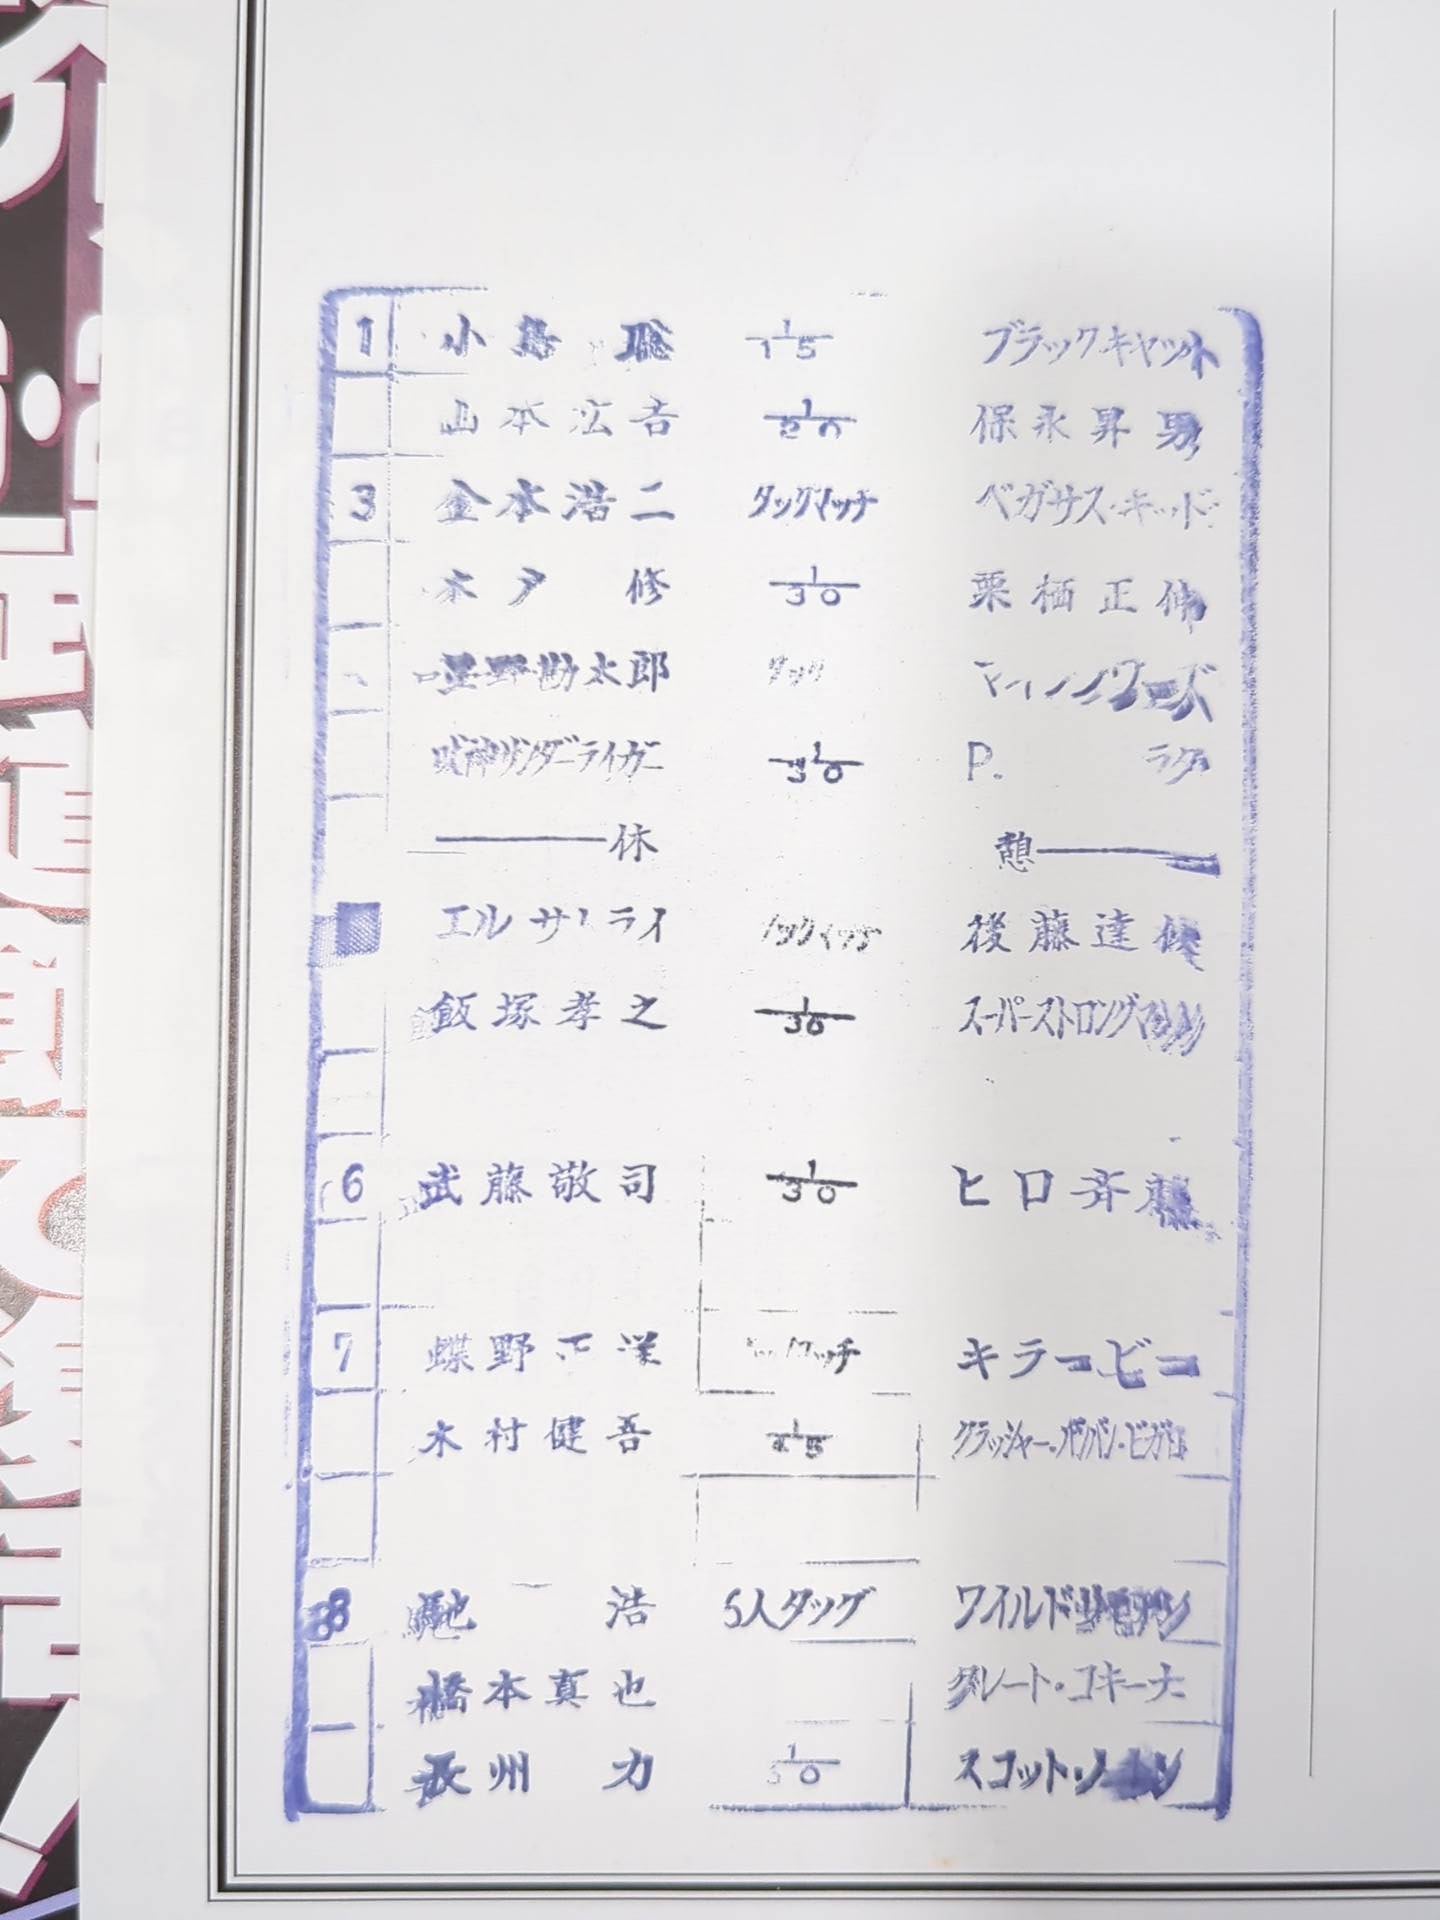 1 小島 聡 1/15 ブラックキャット
山本広吉 1/20 保永昇男
3 金本浩二 タッグマッチ ペガサス・キッド
木戸 修 1/30 栗栖正伸
星野勘太郎 タッグ
獣神サンダーライガー 1/30 P.
休 憩
エルサムライ タッグマッチ 後藤達俊
飯塚孝之 1/30 スーパーストロングマシン
6 武藤敬司 1/30 ヒロ斉藤
7 蝶野正洋 キラービー
木村健吾 1/45 クラッシャー・バンバン・ビガロ
8 馳 浩 6人タッグ ワイルド
橋本真也 グレート・コキーナ
長州 力 スコット・ノートン